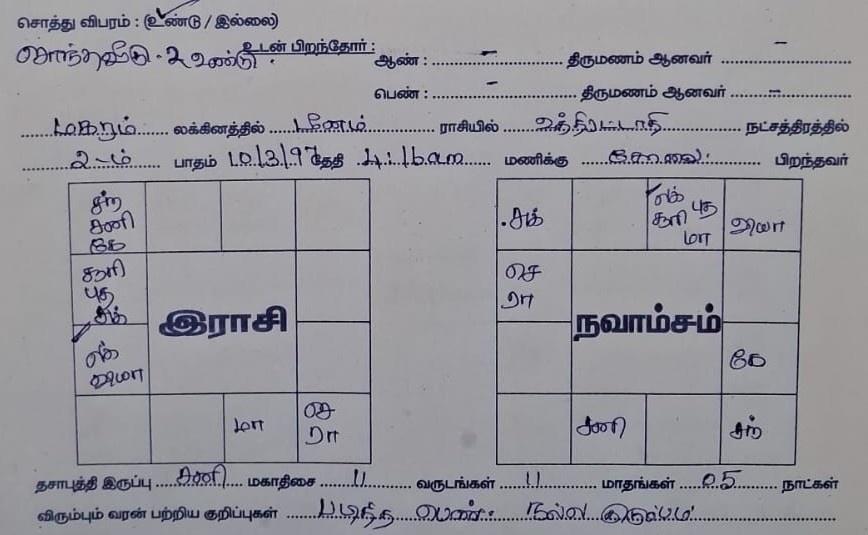 சொத்து விபரம் : (உண்டு / இல்லை)
சொந்தவீடு - 2 உண்டு. உடன் பிறந்தோர் : ஆண் : – திருமணம் ஆனவர் –
பெண் : – திருமணம் ஆனவர் –
மகரம் லக்கினத்தில் மீனம் ராசியில் உத்திரட்டாதி நட்சத்திரத்தில்
2-ம் பாதம் 10/3/97 தேதி 4:16 am மணிக்கு பிறந்தவர்
சந்
சனி
கே
சூரி
புத
சுக்
இராசி
லக்
வியா
மா
செ
ரா
சுக்
லக்
சூரி புத
மா
வியா
செ
ரா
நவாம்சம்
கே
சனி
சந்
தசாபுத்தி இருப்பு சனி மகாதிசை 11 வருடங்கள் 11 மாதங்கள் 05 நாட்கள்
விரும்பும் வரன் பற்றிய குறிப்புகள் படித்த பெண். நல்ல குடும்பம்